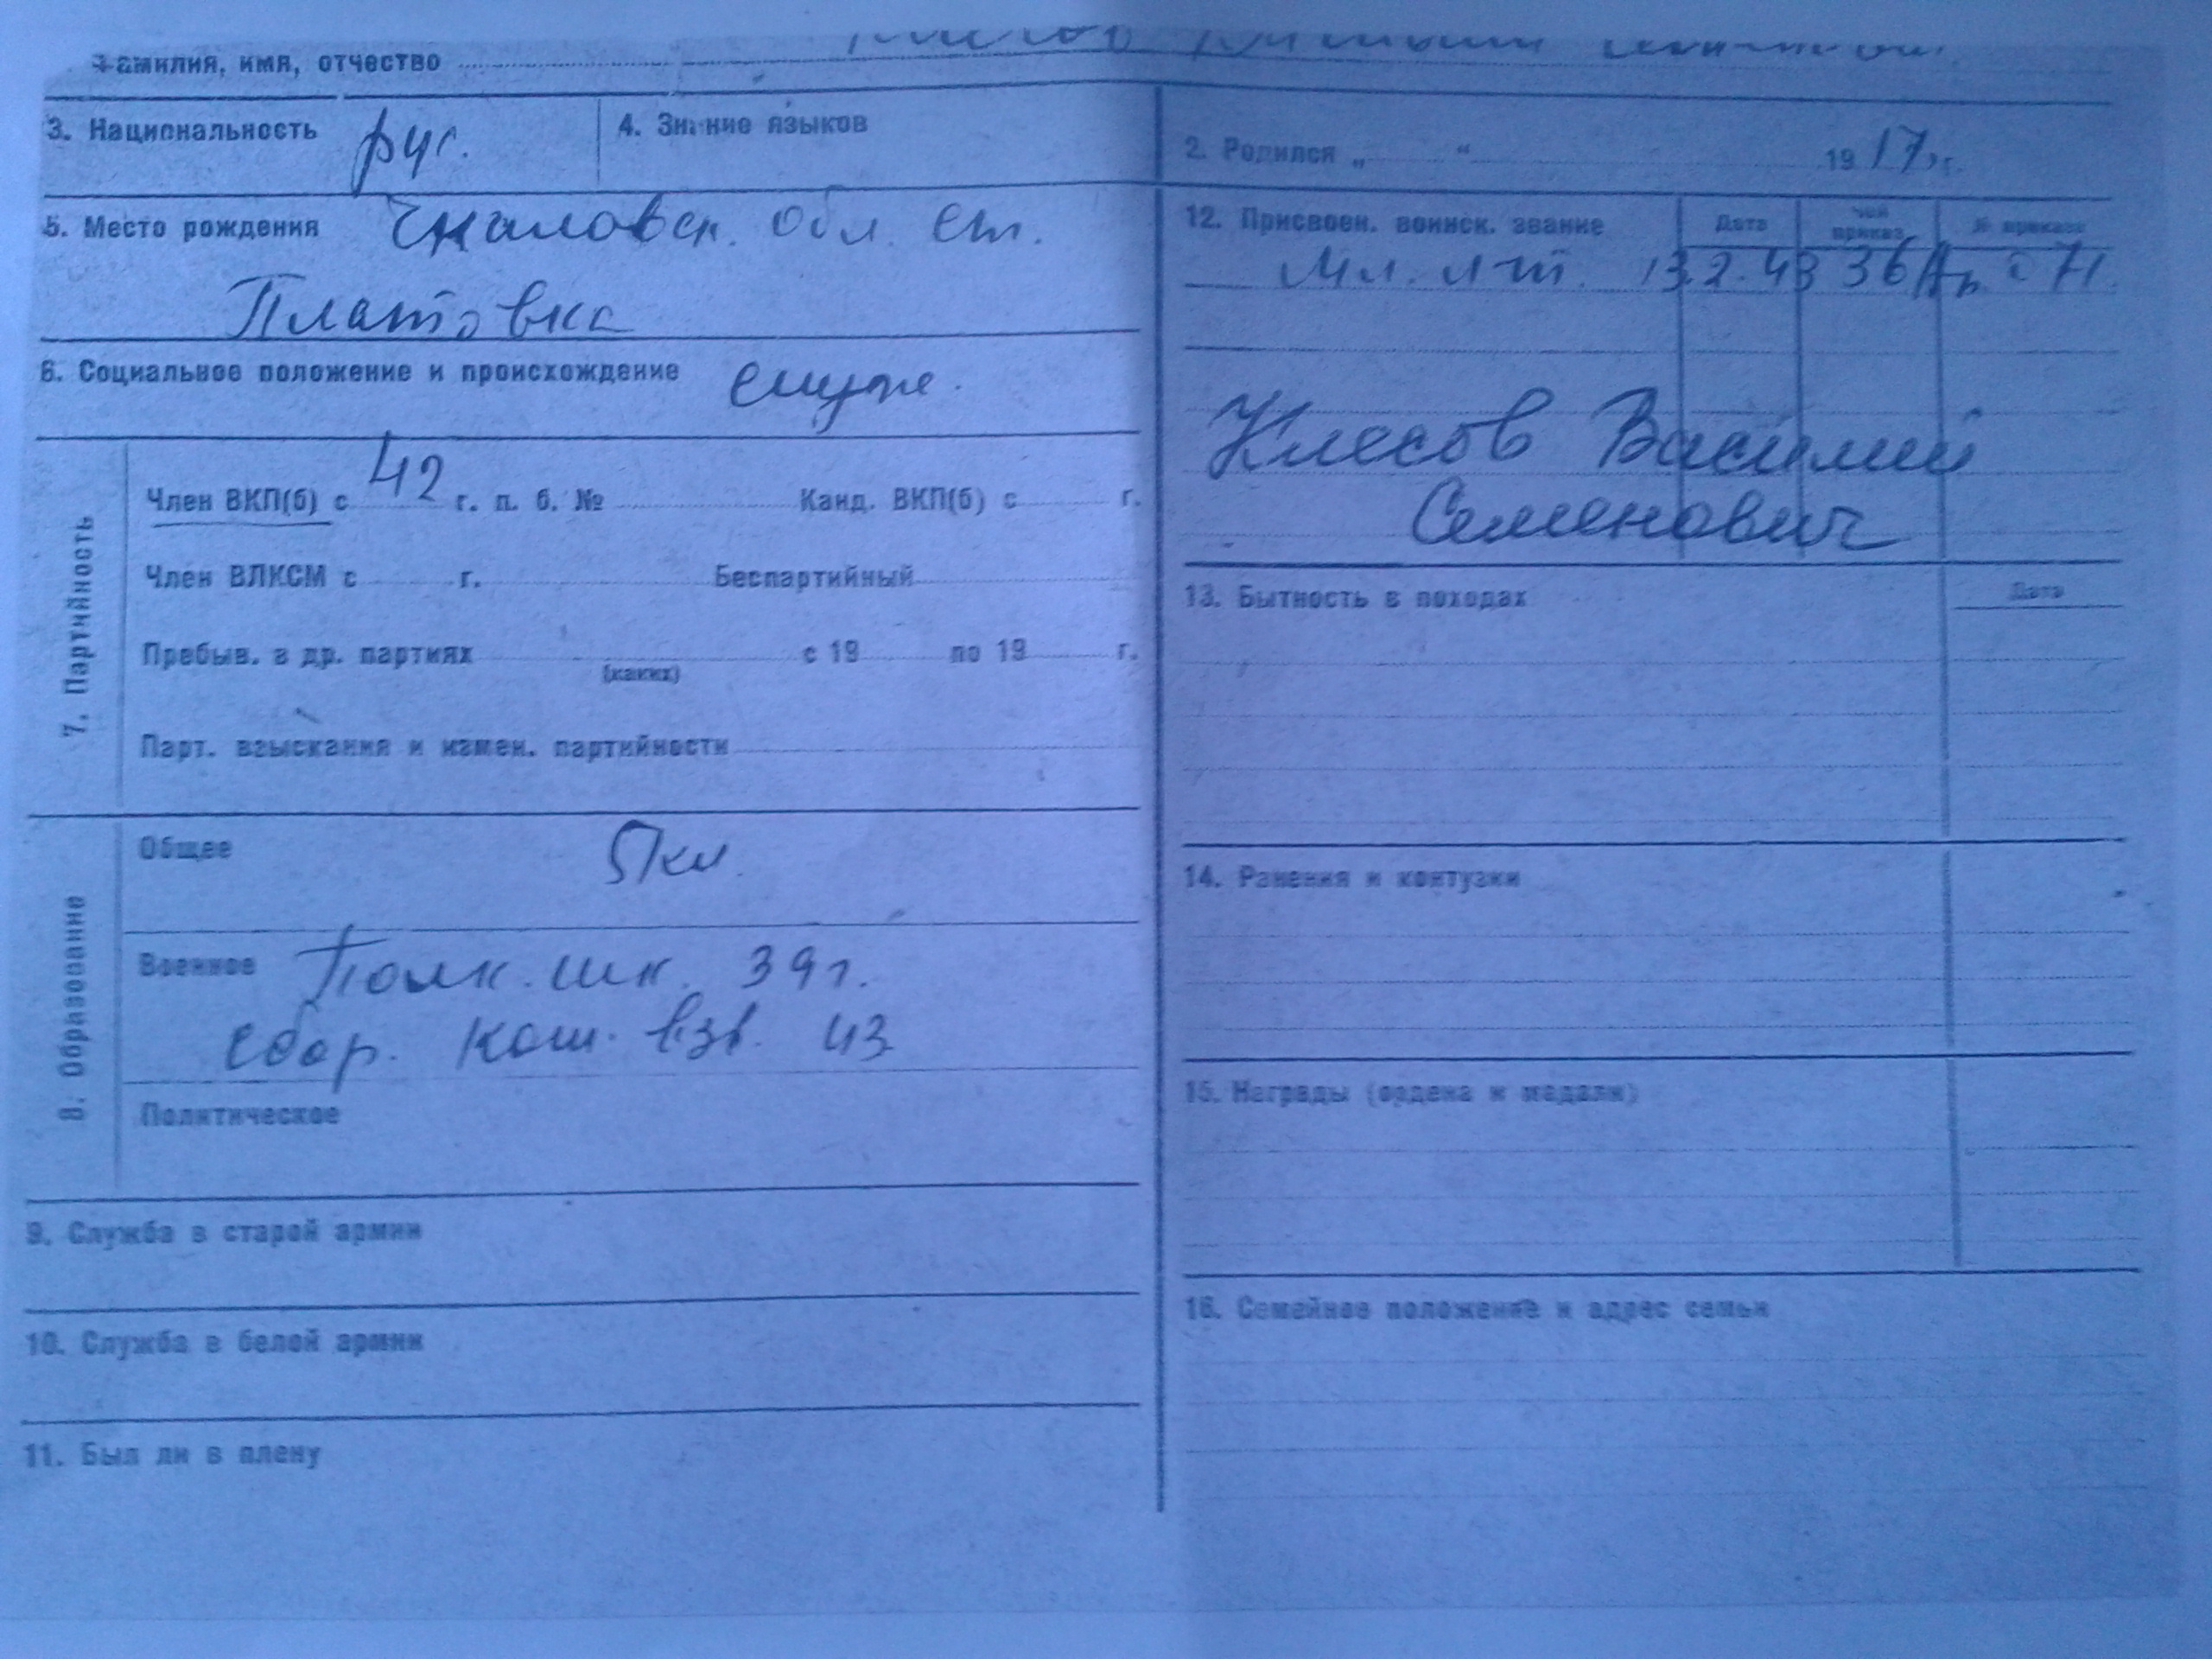 Фамилия, имя, отчество
3. Национальность рус. 4. Знание языков
2. Родился „ “ 1917 г.
5. Место рождения Чкаловск. обл. ст.
Платовка
6. Социальное положение и происхождение служ.
7. Партийность
Член ВКП(б) с 42 г. п. б. № Канд. ВКП(б) с г.
Член ВЛКСМ с г. Беспартийный
Пребыв. в др. партиях с 19 по 19 г.
(каких)
Парт. взыскания и измен. партийности
8. Образование
Общее 5 кл.
Военное Полк. шк. 39 г.
Сбор. ком. взв. 43
Политическое
9. Служба в старой армии
10. Служба в белой армии
11. Был ли в плену
12. Присвоен. воинск. звание Дата Чей приказ № приказа
Мл. л-т. 13.2.43 36 071.
Клесов Василий
Семенович
13. Бытность в походах Дата
14. Ранения и контузии
15. Награды (ордена и медали)
16. Семейное положение и адрес семьи